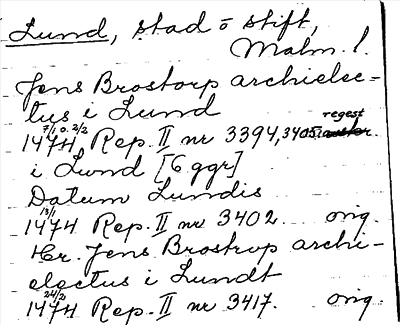 Lund, stad o stift,
Malm. l.
Jens Brostorp archielec-
tus i Lund
7/1 o. 2/2 regest
1474 Rep. II nr 3394, 3405.
i Lund [6 ggr]
Datum Lundis
13/1
1474 Rep. II nr 3402. orig.
Hr. Jens Brostrup archi-
electus i Lundt
24/2
1474 Rep. II nr 3417. orig.